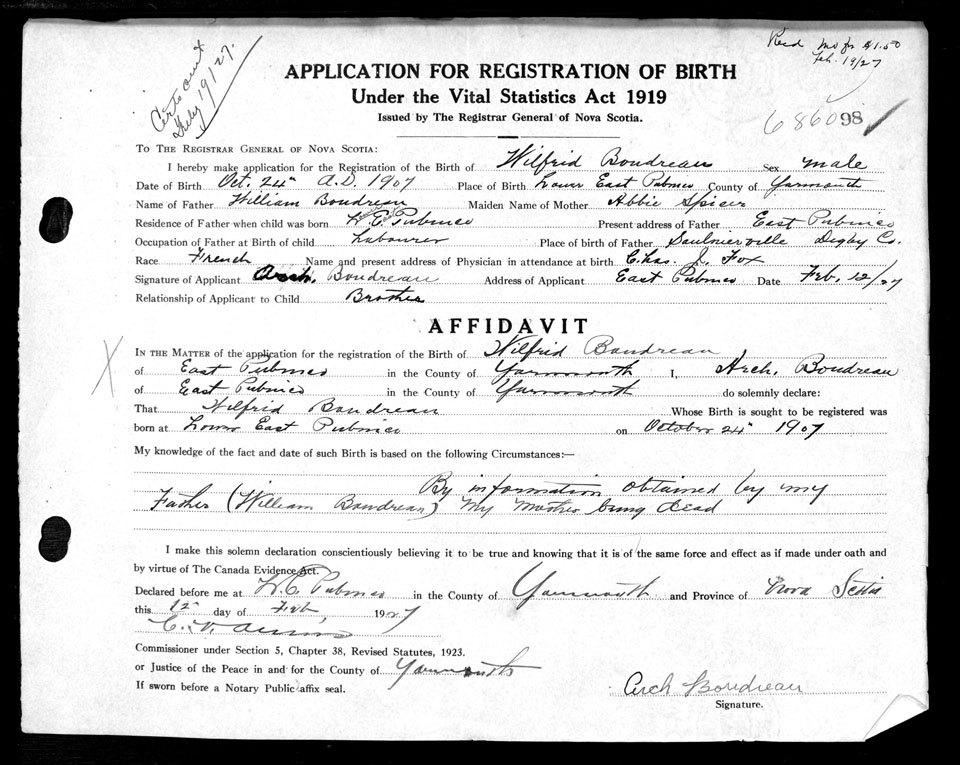 Certs out
July 19/27.
Recd mo for $1.50
Feb. 19/27
APPLICATION FOR REGISTRATION OF BIRTH
Under the Vital Statistics Act 1919
Issued by The Registrar General of Nova Scotia.
686098
TO THE REGISTRAR GENERAL OF NOVA SCOTIA:
I hereby make application for the Registration of the Birth of Wilfrid Boudreau Sex male
Date of Birth Oct. 24th A.D. 1907 Place of Birth Lower East Pubnico County of Yarmouth
Name of Father William Boudreau Maiden Name of Mother Abbie Spicer
Residence of Father when child was born W. E. Pubnico Present address of Father East Pubnico
Occupation of Father at Birth of child Labourer Place of birth of Father Saulnierville Digby Co.
Race French Name and present address of Physician in attendance at birth Chas. J. Fox
Signature of Applicant Arch. Boudreau Address of Applicant East Pubnico Date Feb. 12/27
Relationship of Applicant to Child Brother
AFFIDAVIT
IN THE MATTER of the application for the registration of the Birth of Wilfrid Boudreau
of East Pubnico in the County of Yarmouth I, Arch. Boudreau
of East Pubnico in the County of Yarmouth do solemnly declare:
That Wilfrid Boudreau Whose Birth is sought to be registered was
born at Lower East Pubnico on October 24th 1907
My knowledge of the fact and date of such Birth is based on the following Circumstances:—
By information obtained by my
Father (William Boudreau) My Mother being dead
I make this solemn declaration conscientiously believing it to be true and knowing that it is of the same force and effect as if made under oath and
by virtue of The Canada Evidence Act.
Declared before me at Pubnico in the County of Yarmouth and Province of Nova Scotia
this 12th day of Feb, 1927
Commissioner under Section 5, Chapter 38, Revised Statutes, 1923.
or Justice of the Peace in and for the County of Yarmouth
If sworn before a Notary Public affix seal.
Arch Boudreau
Signature.